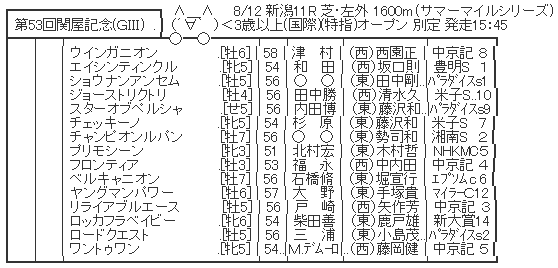 第53回関屋記念(GIII) .
∧＿∧
( ´∀｀)
8/12 新潟11R 芝・左外 1600m (サマーマイルシリーズ)
＜3歳以上(国際)(特指)オープン 別定 発走15:45
ウインガニオン .[牡6] 58 津 村 (西)西園正 中京記 8
エイシンティンクル .[牝5] 54 和 田 (西)坂口則 豊明S 1
ショウナンアンセム .[牡5] 56 ○ ○ (東)田中剛.. ﾊﾟﾗﾀﾞｲｽs1
ジョーストリクトリ .[牡4] 56 田中勝 (西)清水久 米子S..10
スターオブペルシャ .[せ5] 56 内田博 (東)藤沢和.. ﾊﾟﾗﾀﾞｲｽs9
チェッキーノ .[牝5] 54 杉 原 (東)藤沢和 米子S 7
チャンピオンルパン .[牡7] 56 ○ ○ (東)勢司和 湘南S 2
プリモシーン .[牝3] 51 北村宏 (東)木村哲 NHKMC5
フロンティア .[牡3] 53 福 永 (西)中内田 中京記 4
ベルキャニオン .[牡7] 56 石橋脩 (東)堀宣行 ｴﾌﾟｿﾑc6
ヤングマンパワー .[牡6] 57 大 野 (東)手塚貴 ﾏｲﾗｰC12
リライアブルエース .[牡5] 56 戸 崎 (西)矢作芳 中京記 3
ロッカフラベイビー .[牝6] 54 柴田善 (東)鹿戸雄 新大賞14
ロードクエスト .[牡5] 56 三 浦 (東)小島茂.. ﾊﾟﾗﾀﾞｲｽs2
ワントゥワン .[牝5] 54.. M.ﾃﾞﾑｰﾛ (西)藤岡健 中京記 5